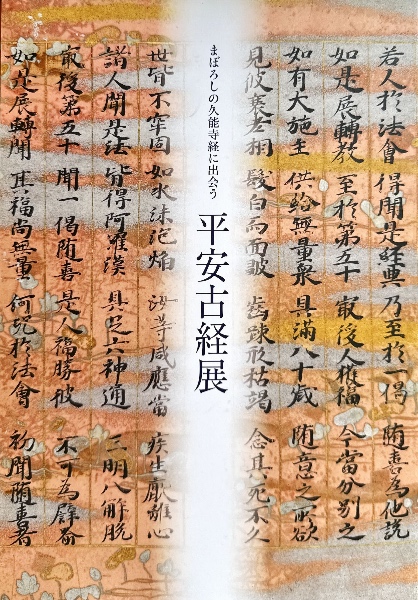 若人於法會 得聞是經典 乃至於一偈 随喜為他説
如是展轉教 至於第五十 最後人獲福 今當分別之
如有大施主 供給無量衆 具満八十歳 随意之所欲
見彼衰老相 髮白而面皺 齒踈形枯竭 念其死不久
まぼろしの久能寺経に出会う
平安古経展
世皆不牢固 如水沫泡焔 汝等咸應當 疾生厭離心
諸人聞是法 皆得阿羅漢 具足六神通 三明八解脱
最後第五十 聞一偈随喜 是人福勝彼 不可為譬喩
如是展轉聞 其福尚無量 何況於法會 初聞随喜者